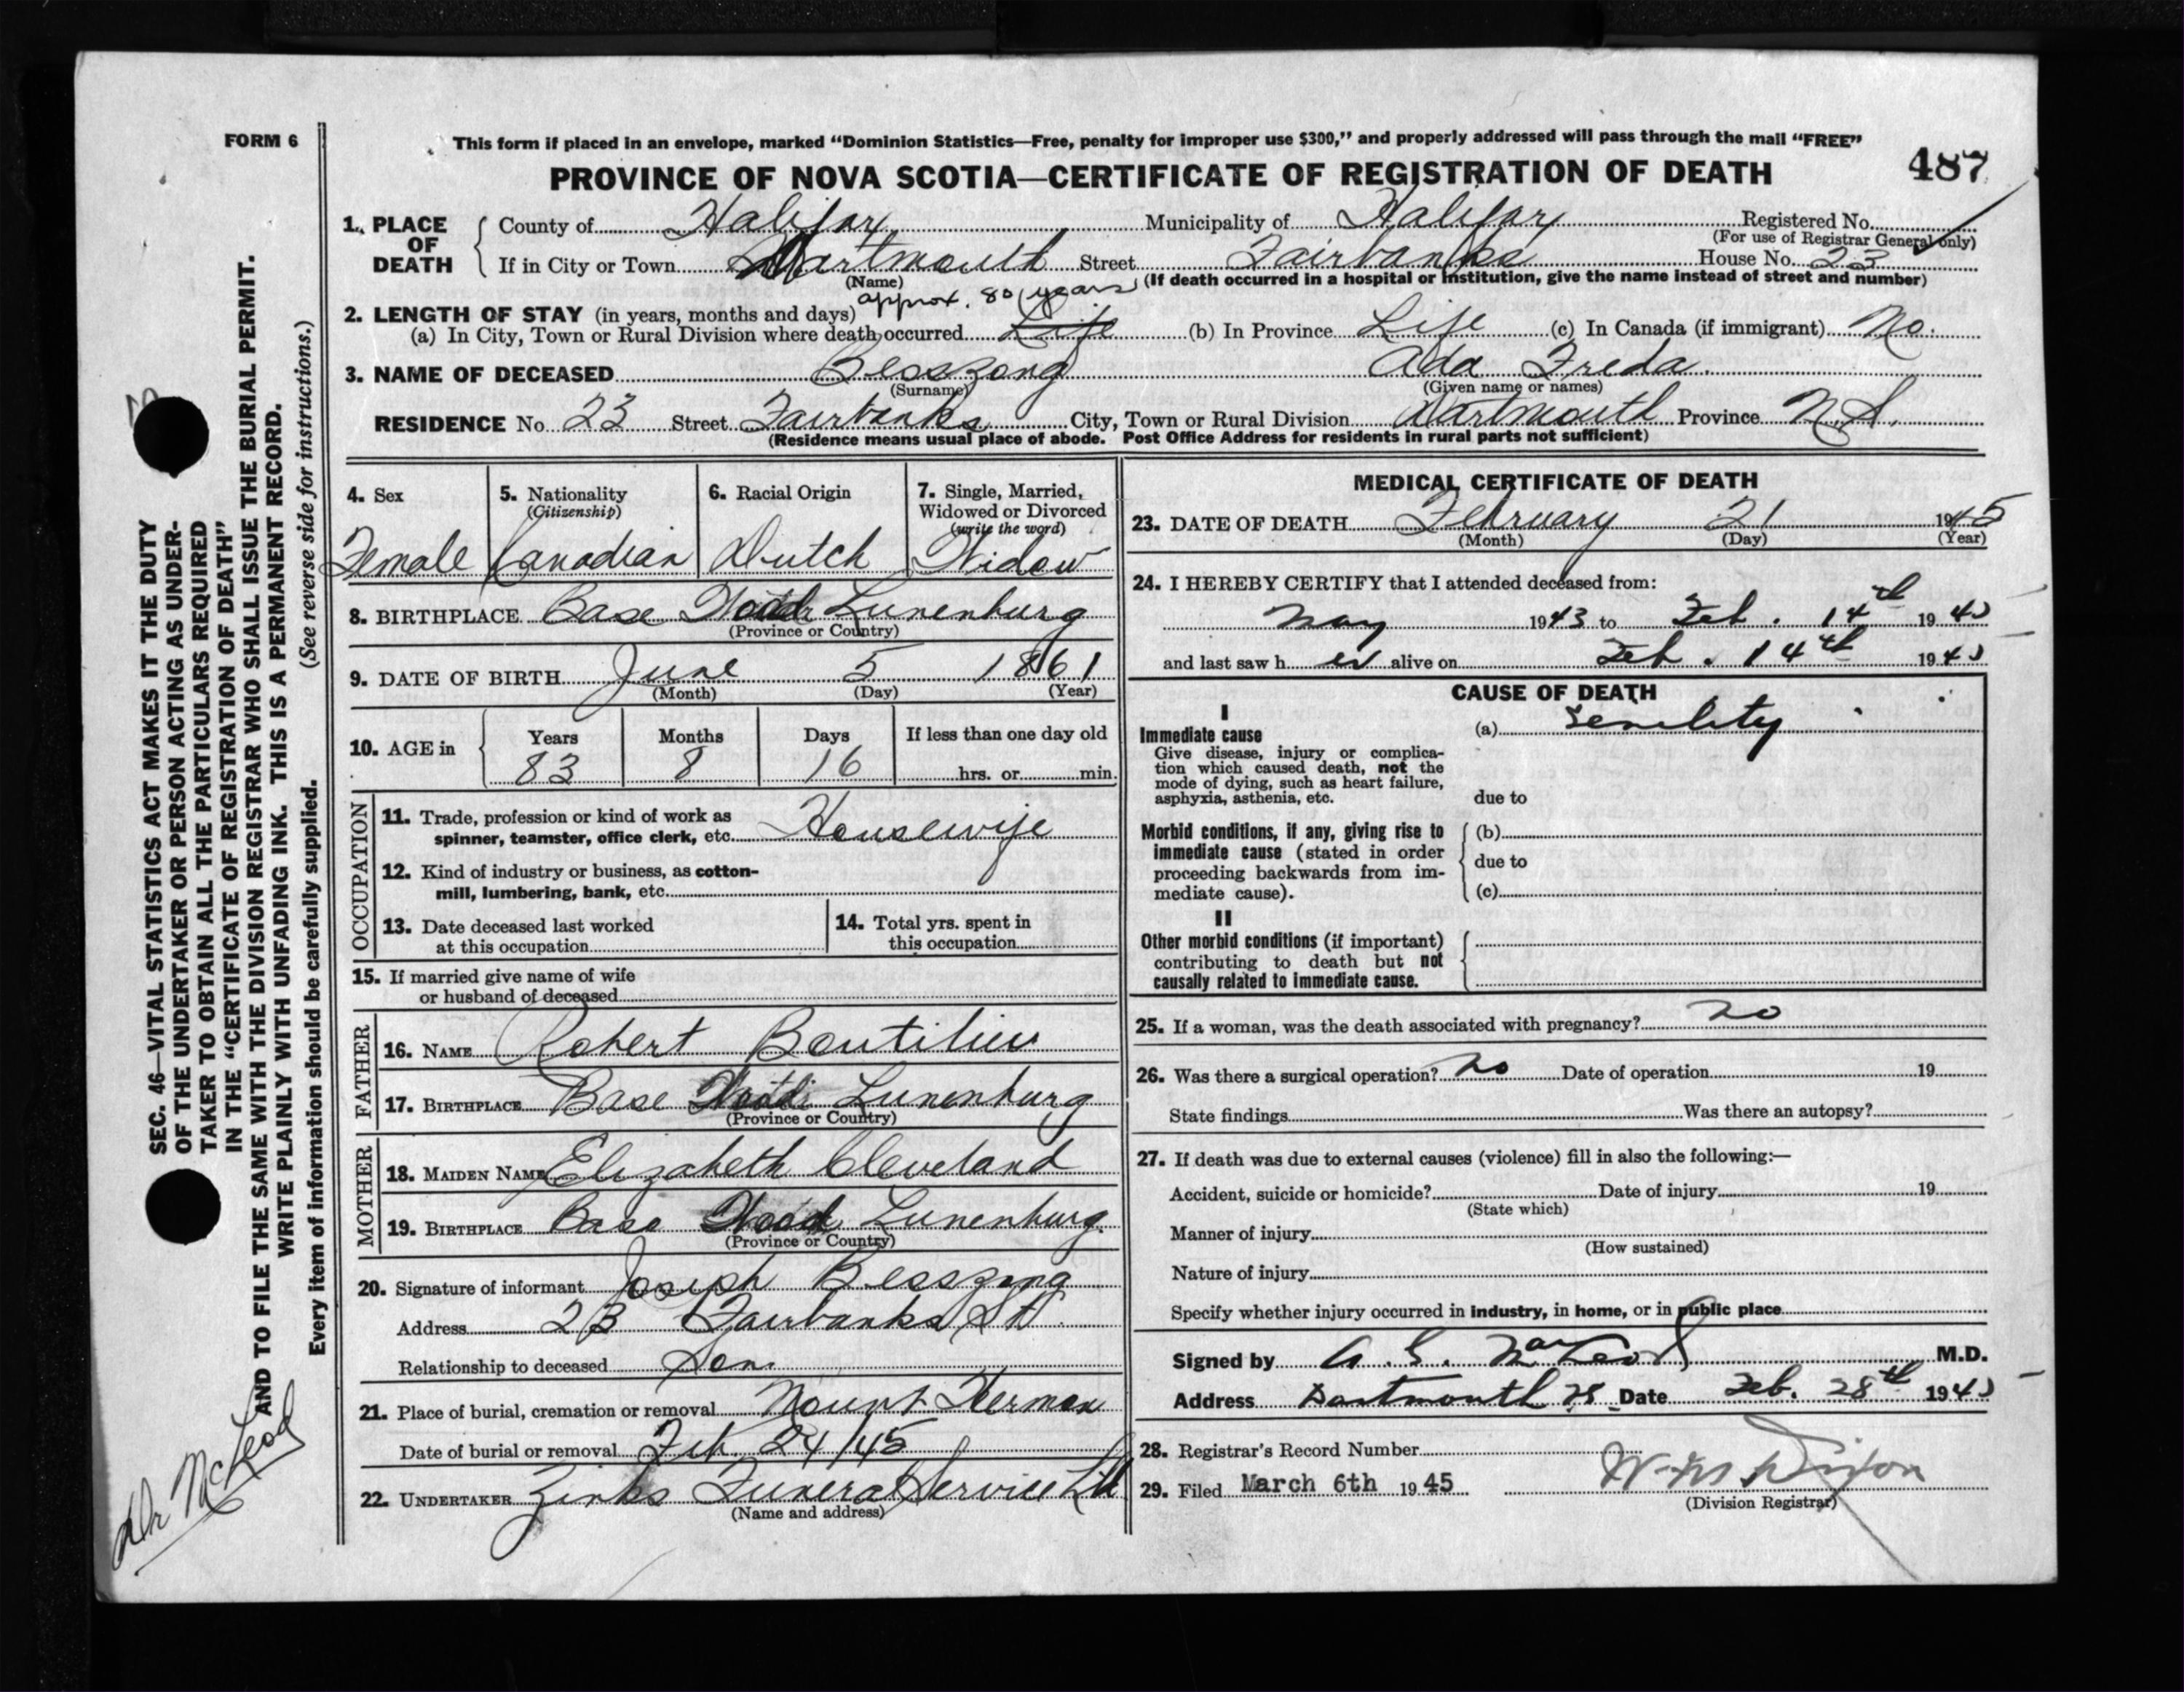 FORM 6
This form if placed in an envelope, marked “Dominion Statistics—Free, penalty for improper use $300,” and properly addressed will pass through the mail “FREE”
PROVINCE OF NOVA SCOTIA—CERTIFICATE OF REGISTRATION OF DEATH
487
1. PLACE OF DEATH
County of Halifax Municipality of Halifax Registered No.
(For use of Registrar General only)
If in City or Town Dartmouth Street Fairbanks House No. 23
(Name) (If death occurred in a hospital or institution, give the name instead of street and number)
approx. 80 years
2. LENGTH OF STAY (in years, months and days)
(a) In City, Town or Rural Division where death occurred Life (b) In Province Life (c) In Canada (if immigrant) No.
3. NAME OF DECEASED Besszong Ada Freda.
(Surname) (Given name or names)
RESIDENCE No. 23 Street Fairbanks City, Town or Rural Division Dartmouth Province N.S.
(Residence means usual place of abode. Post Office Address for residents in rural parts not sufficient)
4. Sex
Female
5. Nationality
(Citizenship)
Canadian
6. Racial Origin
Dutch
7. Single, Married,
Widowed or Divorced
(write the word)
Widow
8. BIRTHPLACE Base Lunenburg
(Province or Country)
9. DATE OF BIRTH June 5 1861
(Month) (Day) (Year)
10. AGE in
Years Months Days If less than one day old
83 8 16 hrs. or min.
OCCUPATION
11. Trade, profession or kind of work as
spinner, teamster, office clerk, etc. Housewife
12. Kind of industry or business, as cotton-
mill, lumbering, bank, etc.
13. Date deceased last worked
at this occupation
14. Total yrs. spent in
this occupation
15. If married give name of wife
or husband of deceased
FATHER
16. NAME Robert Boutilier
17. BIRTHPLACE Base Lunenburg
(Province or Country)
MOTHER
18. MAIDEN NAME Elizabeth Cleveland
19. BIRTHPLACE Base Lunenburg.
(Province or Country)
20. Signature of informant Joseph Besszong
Address 23 Fairbanks St.
Relationship to deceased Son.
21. Place of burial, cremation or removal Mount Hermon
Date of burial or removal Feb. 24/45
22. UNDERTAKER Zinks Funeral Service Ltd
(Name and address)
MEDICAL CERTIFICATE OF DEATH
23. DATE OF DEATH February 21 1945
(Month) (Day) (Year)
24. I HEREBY CERTIFY that I attended deceased from:
May 1943 to Feb. 14th 1945
and last saw h er alive on Feb. 14th 1945
CAUSE OF DEATH
I
Immediate cause
Give disease, injury or complica-
tion which caused death, not the
mode of dying, such as heart failure,
asphyxia, asthenia, etc.
(a) Senility
due to
Morbid conditions, if any, giving rise to
immediate cause (stated in order
proceeding backwards from im-
mediate cause).
(b)
due to
(c)
II
Other morbid conditions (if important)
contributing to death but not
causally related to immediate cause.
25. If a woman, was the death associated with pregnancy? no
26. Was there a surgical operation? no Date of operation 19
State findings Was there an autopsy?
27. If death was due to external causes (violence) fill in also the following:—
Accident, suicide or homicide? Date of injury 19
(State which)
Manner of injury
(How sustained)
Nature of injury
Specify whether injury occurred in industry, in home, or in public place
Signed by M.D.
Address Dartmouth NS. Date Feb. 28th 1945
28. Registrar's Record Number
29. Filed March 6th 1945
(Division Registrar)
SEC. 46—VITAL STATISTICS ACT MAKES IT THE DUTY
OF THE UNDERTAKER OR PERSON ACTING AS UNDER-
TAKER TO OBTAIN ALL THE PARTICULARS REQUIRED
IN THE “CERTIFICATE OF REGISTRATION OF DEATH”
AND TO FILE THE SAME WITH THE DIVISION REGISTRAR WHO SHALL ISSUE THE BURIAL PERMIT.
WRITE PLAINLY WITH UNFADING INK. THIS IS A PERMANENT RECORD.
Every item of information should be carefully supplied. (See reverse side for instructions.)
Dr McLeod